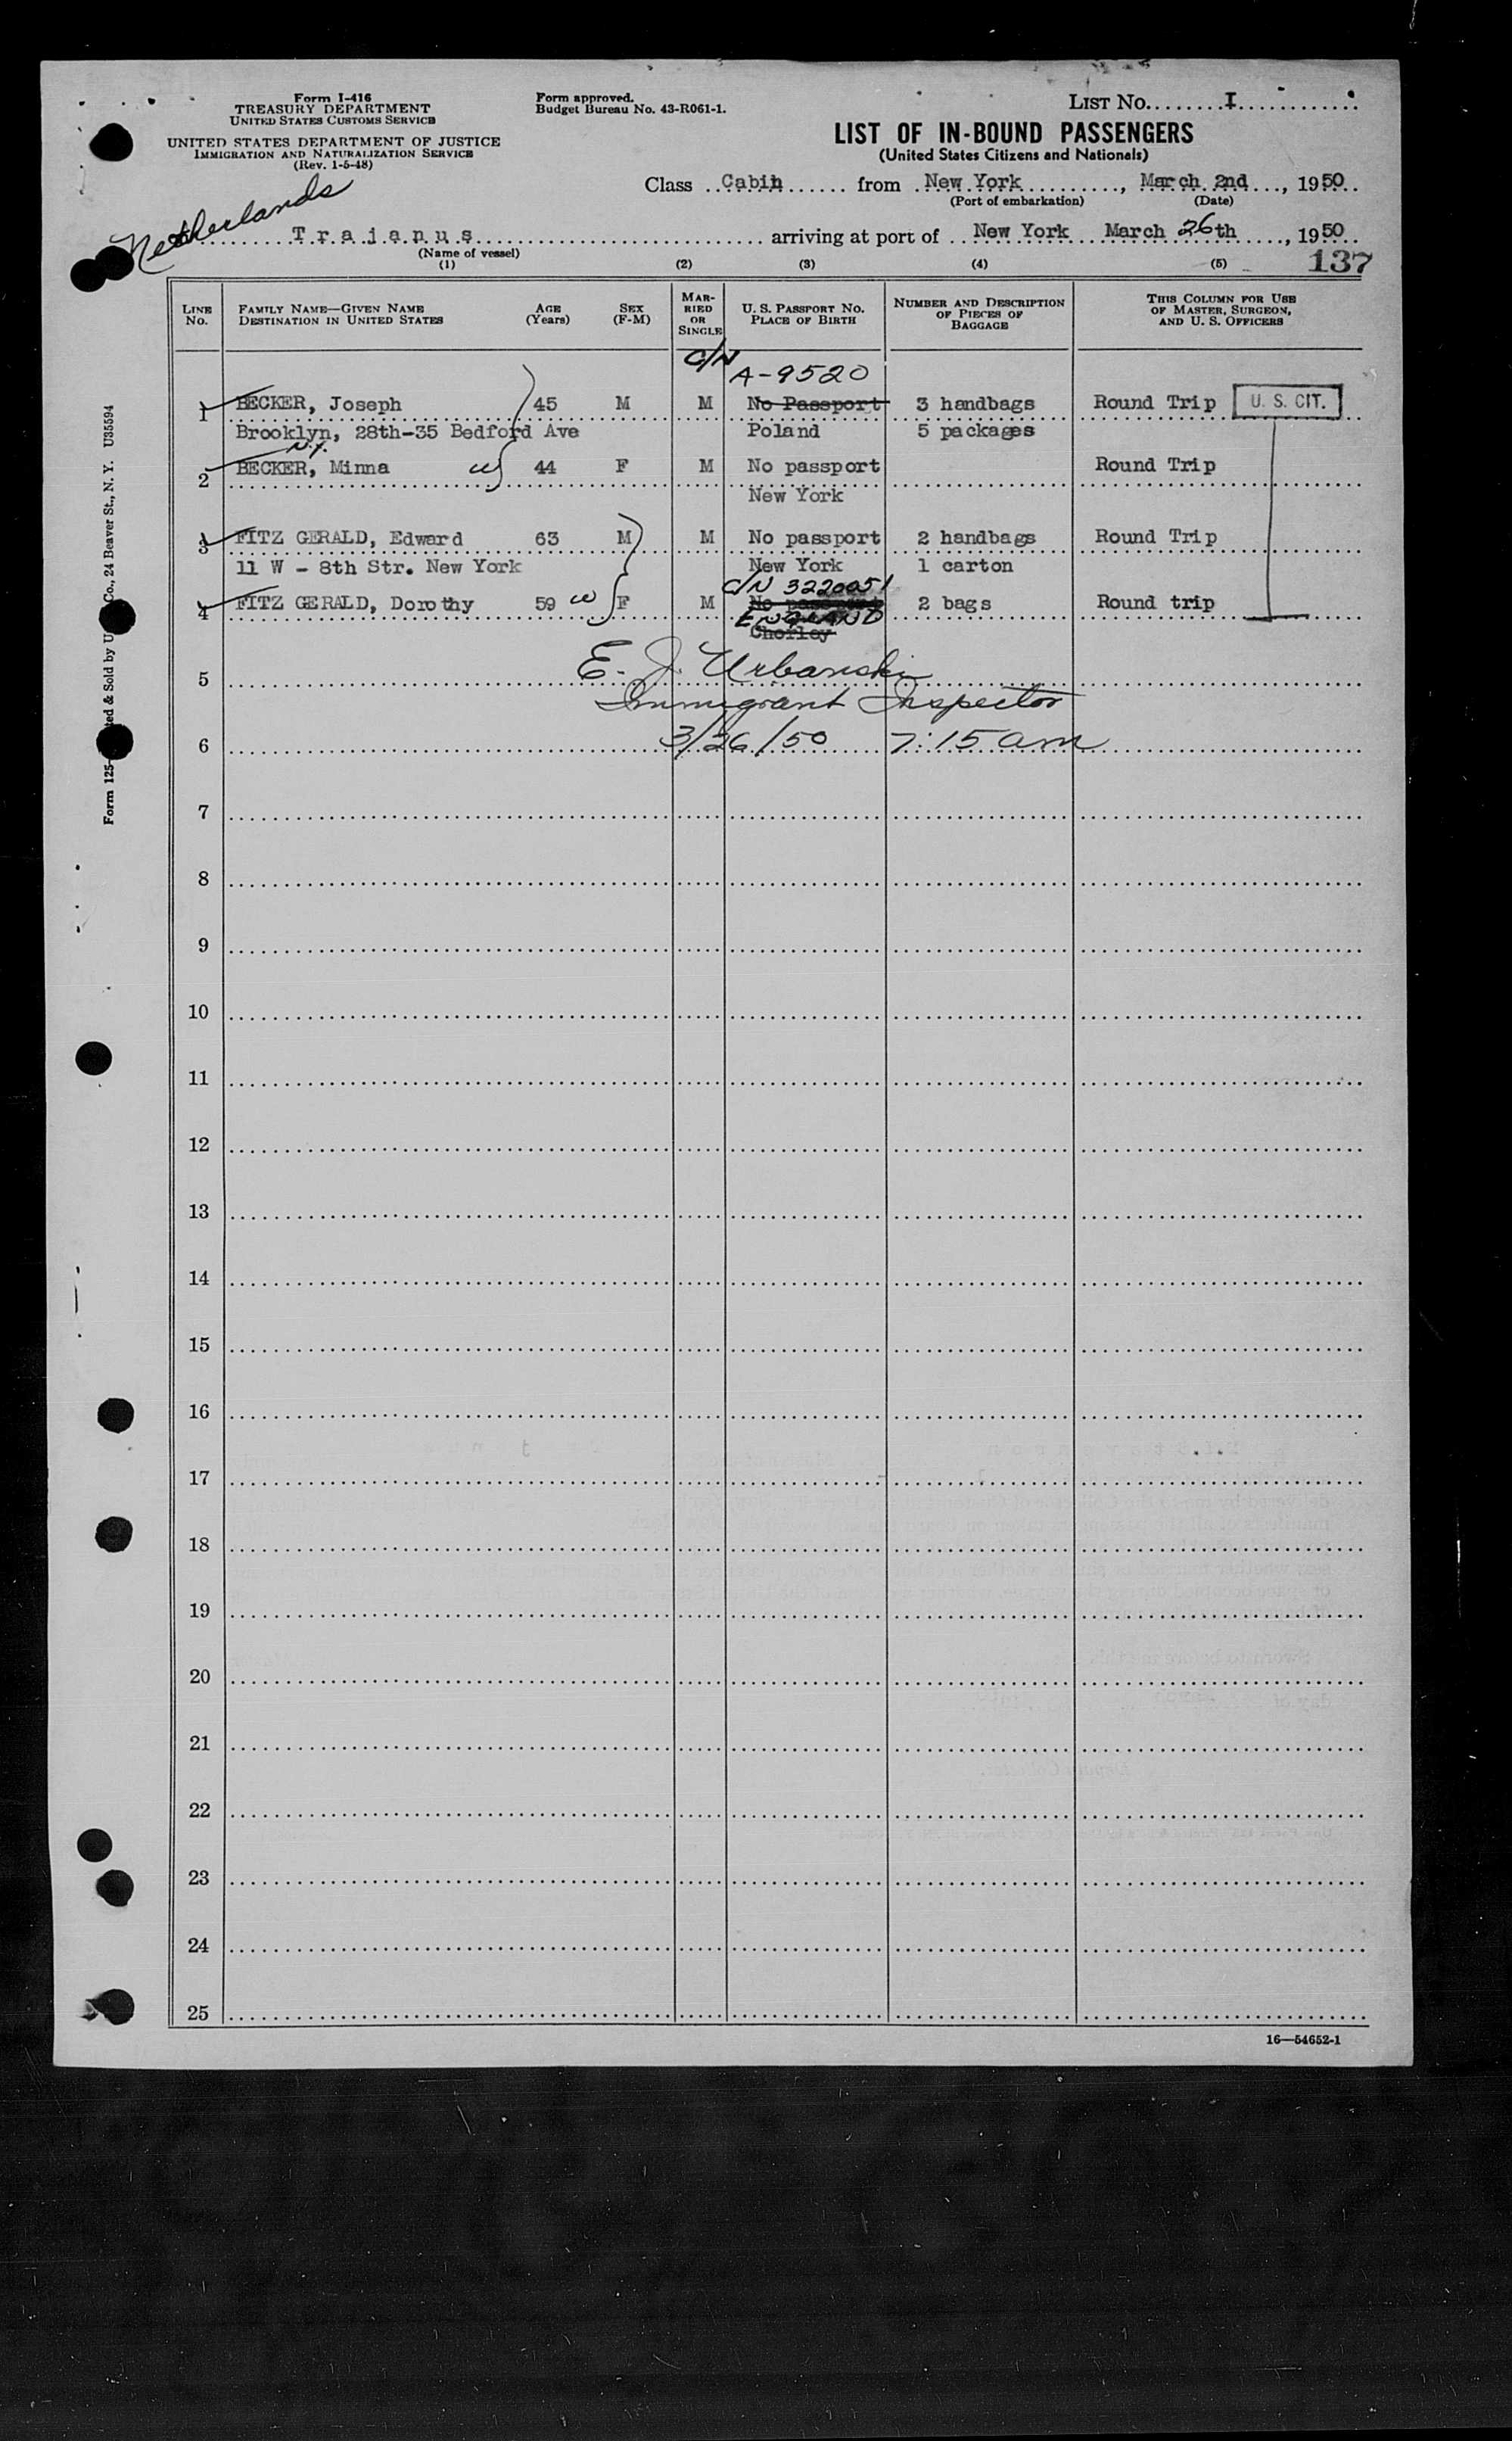 Form I-416
TREASURY DEPARTMENT
UNITED STATES CUSTOMS SERVICE
UNITED STATES DEPARTMENT OF JUSTICE
IMMIGRATION AND NATURALIZATION SERVICE
(Rev. 1-5-48)
Form approved.
Budget Bureau No. 43-R061-1.
LIST NO. I
LIST OF IN-BOUND PASSENGERS
(United States Citizens and Nationals)
Class Cabin from New York, March 2nd, 1950
(Port of embarkation) (Date)
Netherlands
Trajanus arriving at port of New York March 26th, 1950
(Name of vessel)
137
(1) (2) (3) (4) (5)
LINE No. FAMILY NAME—GIVEN NAME DESTINATION IN UNITED STATES AGE (Years) SEX (F-M) MARRIED OR SINGLE U. S. PASSPORT NO. PLACE OF BIRTH NUMBER AND DESCRIPTION OF PIECES OF BAGGAGE THIS COLUMN FOR USE OF MASTER, SURGEON, AND U. S. OFFICERS
C/N A-9520
1 BECKER, Joseph 45 M M No Passport 3 handbags Round Trip U. S. CIT.
Brooklyn, 28th-35 Bedford Ave Poland 5 packages
N.Y.
2 BECKER, Minna w 44 F M No passport Round Trip
New York
3 FITZ GERALD, Edward 63 M M No passport 2 handbags Round Trip
11 W - 8th Str. New York New York 1 carton
C/N 3220051
4 FITZ GERALD, Dorothy 59 w F M No passport 2 bags Round trip
ENGLAND
Chorley
E. J. Urbanski
5
Immigrant Inspector
6 3/26/50 7:15 am
7
8
9
10
11
12
13
14
15
16
17
18
19
20
21
22
23
24
25
16—54652-1
Form 125- ted & Sold by U Co., 24 Beaver St., N. Y. U35594